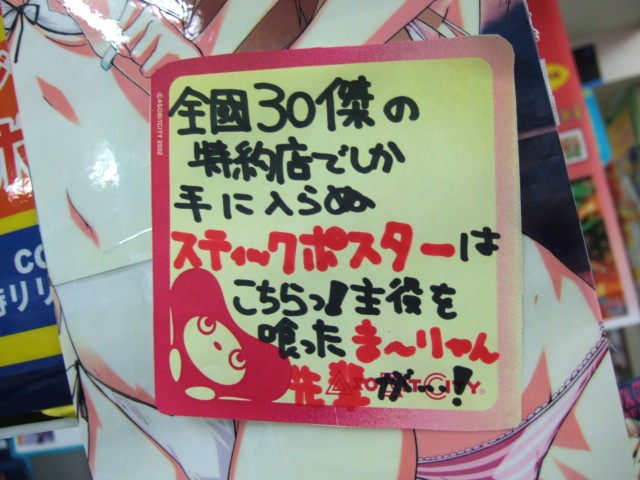 ©ASOBITCITY 2002
全國30傑の
特約店でしか
手に入らぬ
スティックポスターは
こちらっ!主役を
喰ったま〜りゃん
先輩が…!
ASOBITCITY®